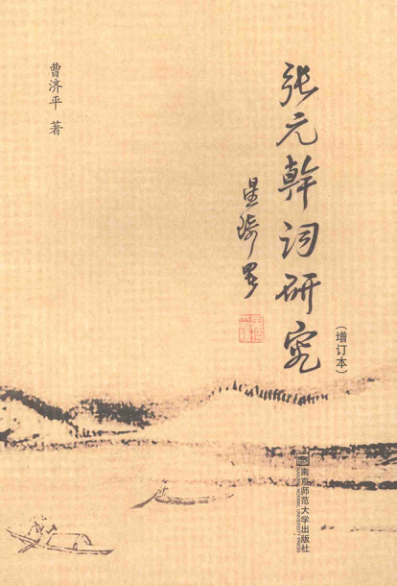 张元幹词研究
(增订本)
星琦署
曹济平 著
南京师范大学出版社